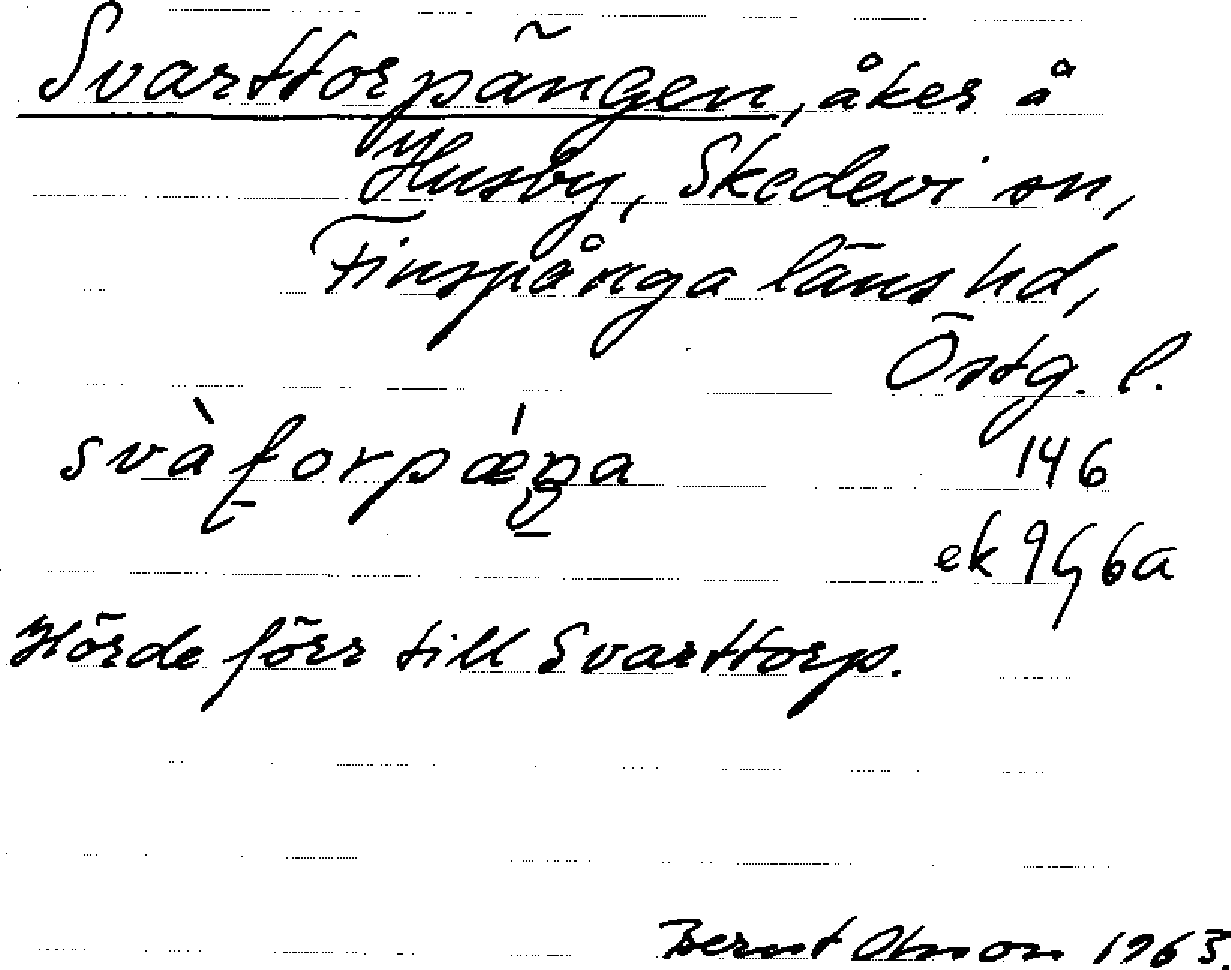 Svarttorpängen, åker å
Husby, Skedevi sn,
Finspånga läns hd,
Östg. l.
146
ek 9G6a
Hörde förr till Svarttorp.
Bernt Olsson 1963.